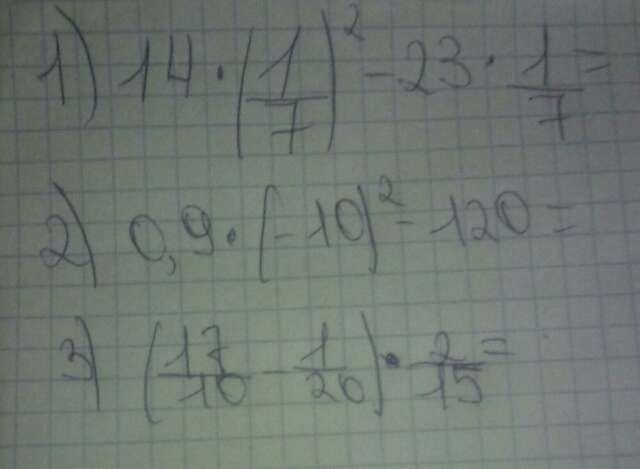 1) 14 · (1/7)² - 23 · 1/7 =
2) 0,9 · (-10)² - 120 =
3) (17/10 - 1/20) · 2/15 =